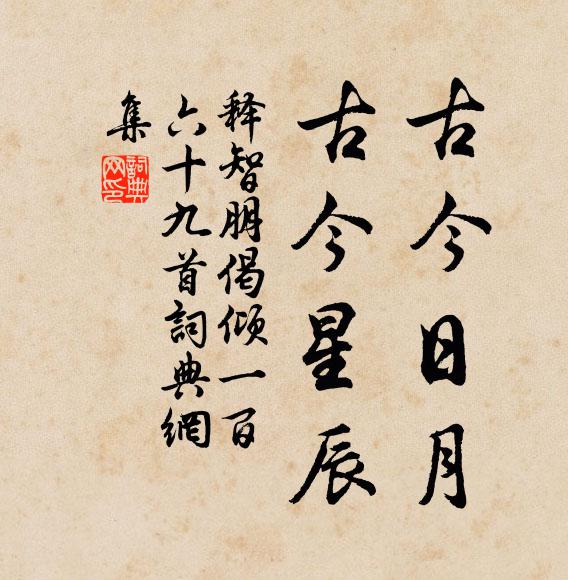 古今日月
古今星辰
释智朋偈倾一百
六十九首詞典網
集
詞典网印